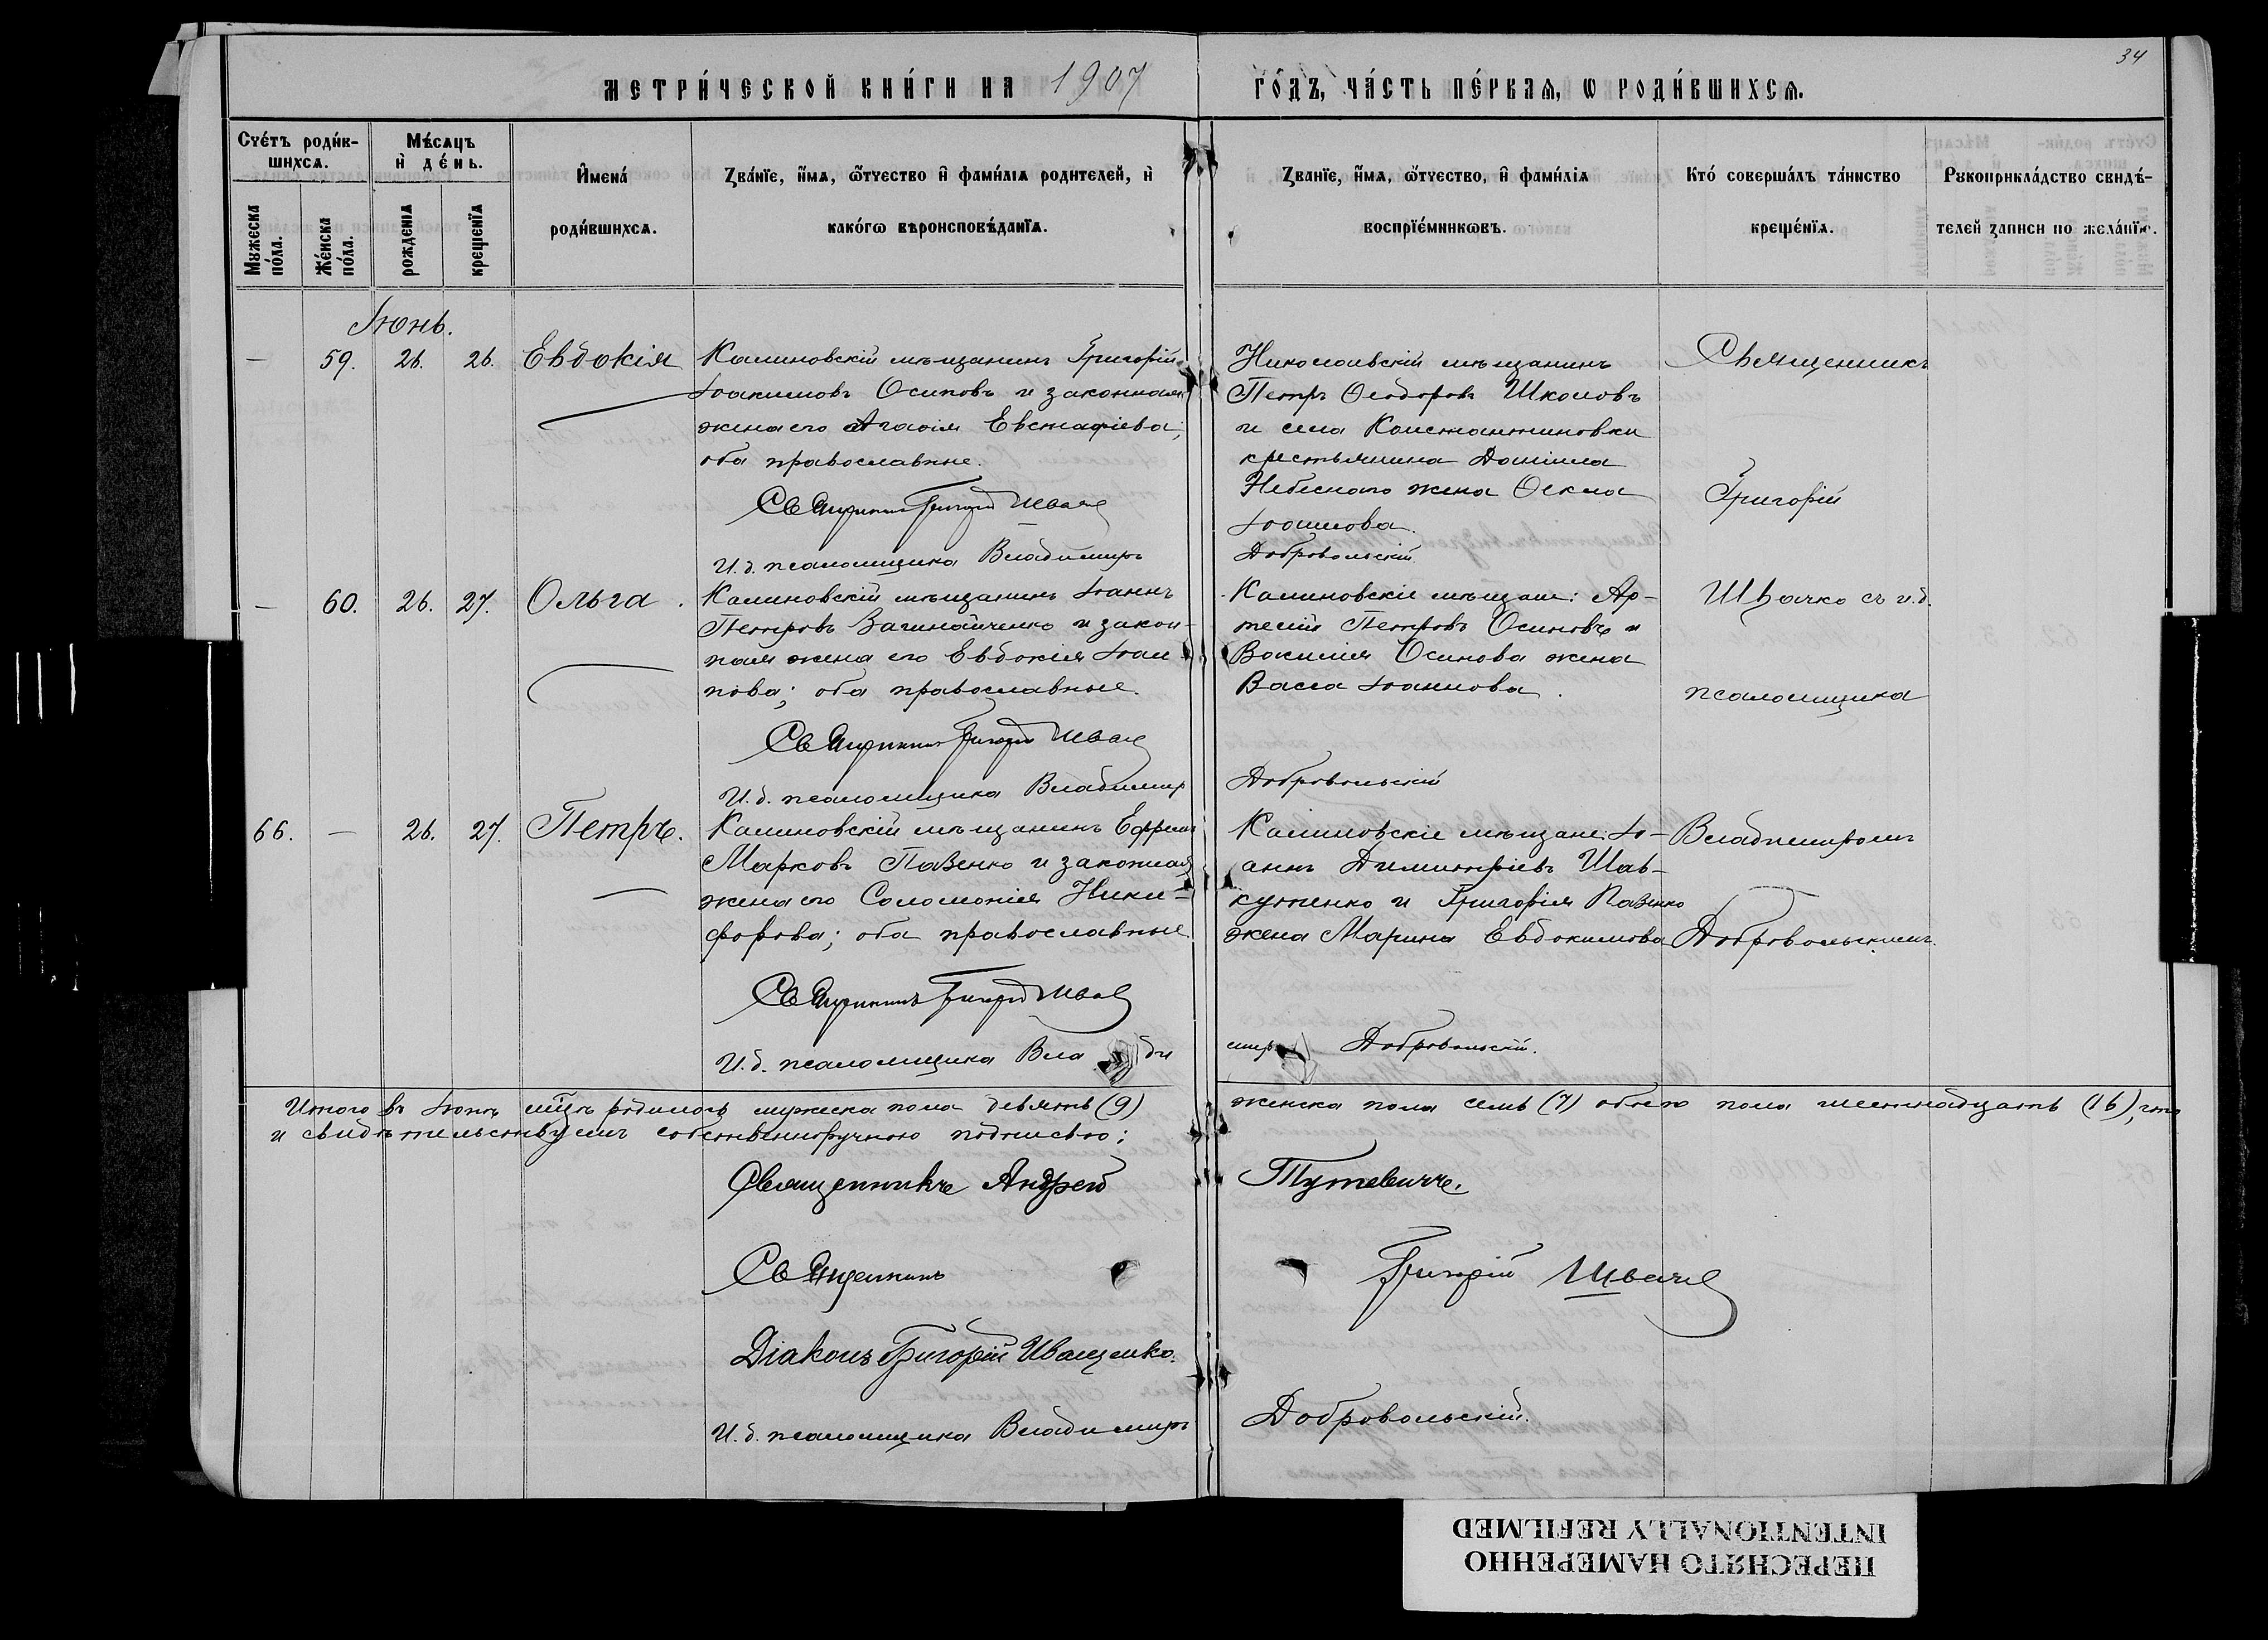 34
МЕТРИ́ЧЕСКОЙ КНИ́ГИ НА 1907 ГО́ДЪ, ЧА́СТЬ ПЕ́РВАѦ, Ѡ РОДИ́ВШИХСѦ.
Счéтъ роди́в-
шихсѧ.
Мужеска по́ла.
Же́нска по́ла.
Мѣ́сѧцъ
и҆ де́нь.
рожденїѧ
крещенїѧ
И҆мена́
роди́вшихсѧ.
Зва́нїе, и҆́мѧ, ѻ҆́тчество и҆ фами́лїѧ родителей, и҆
како́гѡ вѣроисповѣ́данїѧ.
Званїе, и҆́мѧ, ѻ҆́тчество, и҆ фами́лїѧ
воспрїе́мникѡвъ.
Кто́ соверша́лъ та́инство
креще́нїѧ.
Рукоприкла́дство свидѣ́-
телей записи по жела́нїю.
Іюнь.
— 59. 26. 26. Евдокія
Калиновскій мѣщанинъ Григорій
Іоакимовъ Осиповъ и законная
жена его Агаѳія Евстафіева;
оба православные.
Священникъ Григорій Швач
И.д. псаломщика Владимиръ
Николаевскій мѣщанинъ
Петръ Ѳеодоровъ Школовъ
и села Константиновки
крестьянина Даніила
Небеснаго жена Ѳекла
Іоанова.
Добровольскій
Священникъ
Григорій
— 60. 26. 27. Ольга.
Калиновскій мѣщанинъ Іоаннъ
Петровъ и закон-
ная жена его Евдокія Іоан
нова; оба православные.
Священникъ Григорій Швач
И.д. псаломщика Владимир
Калиновскіе мѣщане: Ар-
темій Петровъ Осиповъ и
Василія Осипова жена
Васса Іоаннова.
Добровольскій
Швачко съ и.д.
псаломщика
66. — 26. 27. Петръ.
Калиновскій мѣщанинъ Ефрем
Марковъ Пазенко и законная
жена его Соломонія Ники-
форова; оба православные
Священникъ Григорій Швач
И.д. псаломщика Вла ди
Калиновскіе мѣщане: Іо-
аннъ Димитріевъ Шав-
кутенко и Григорія Пазенко
жена Марина Евдокимова
миръ Добровольскій.
Владимиромъ
Добровольскимъ.
Итого въ Іюнѣ мцѣ родилось мужеска пола девять (9) женска пола семь (7) обоего пола шестнадцать (16), что
и свидѣтельствуемъ собственноручною подписью:
Священникъ Андрей Тутевичъ.
Священникъ Григорій Швач
Діаконъ Григорій Иващенко.
И.д. псаломщика Владимиръ Добровольскій.
ПЕРЕСНЯТО НАМЕРЕННО
INTENTIONALLY REFILMED